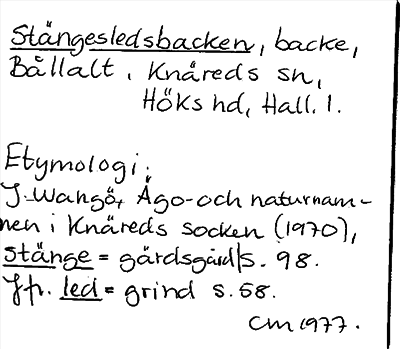 Stängesledsbacken, backe,
Bållalt, Knäreds sn,
Höks hd, Hall. l.
Etymologi:
J. Wangö, Ägo- och naturnam-
nen i Knäreds socken (1970),
stänge = gärdsgård s. 98.
Jfr. led = grind s. 58.
CM 1977.